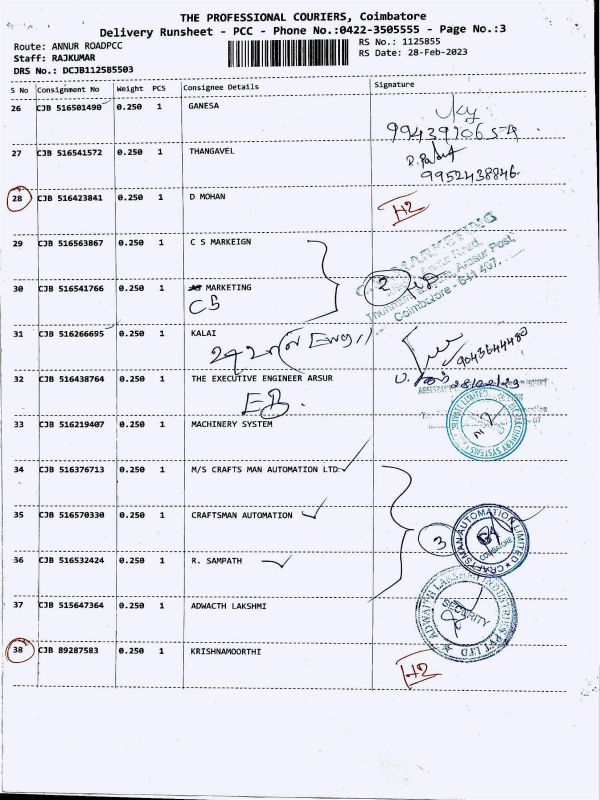 THE PROFESSIONAL COURIERS, Coimbatore
Delivery Runsheet - PCC - Phone No.:0422-3505555 - Page No.:3
Route: ANNUR ROADPCC
RS No.: 1125855
Staff: RAJKUMAR
RS Date: 28-Feb-2023
DRS No.: DCJB112585503
S No Consignment No Weight PCS Consignee Details Signature
26 CJB 516501490 0.250 1 GANESA
27 CJB 516541572 0.250 1 THANGAVEL
9952438846
28 CJB 516423841 0.250 1 D MOHAN H2
29 CJB 516563867 0.250 1 C S MARKEIGN
30 CJB 516541766 0.250 1 MARKETING 2
CS
Coimbatore - 641 407.
31 CJB 516266695 1 KALAI
9043644480
32 CJB 516438764 0.250 1 THE EXECUTIVE ENGINEER ARSUR 28/02/23
EB
33 CJB 516219407 0.250 1 MACHINERY SYSTEM
34 CJB 516376713 0.250 1 M/S CRAFTS MAN AUTOMATION LTD
35 CJB 516570330 0.250 1 CRAFTSMAN AUTOMATION 3
CRAFTSMAN AUTOMATION LIMITED
COIMBATORE
36 CJB 516532424 0.250 1 R. SAMPATH
37 CJB 515647364 0.250 1 ADWACTH LAKSHMI
SECURITY
38 CJB 89287583 0.250 1 KRISHNAMOORTHI H2